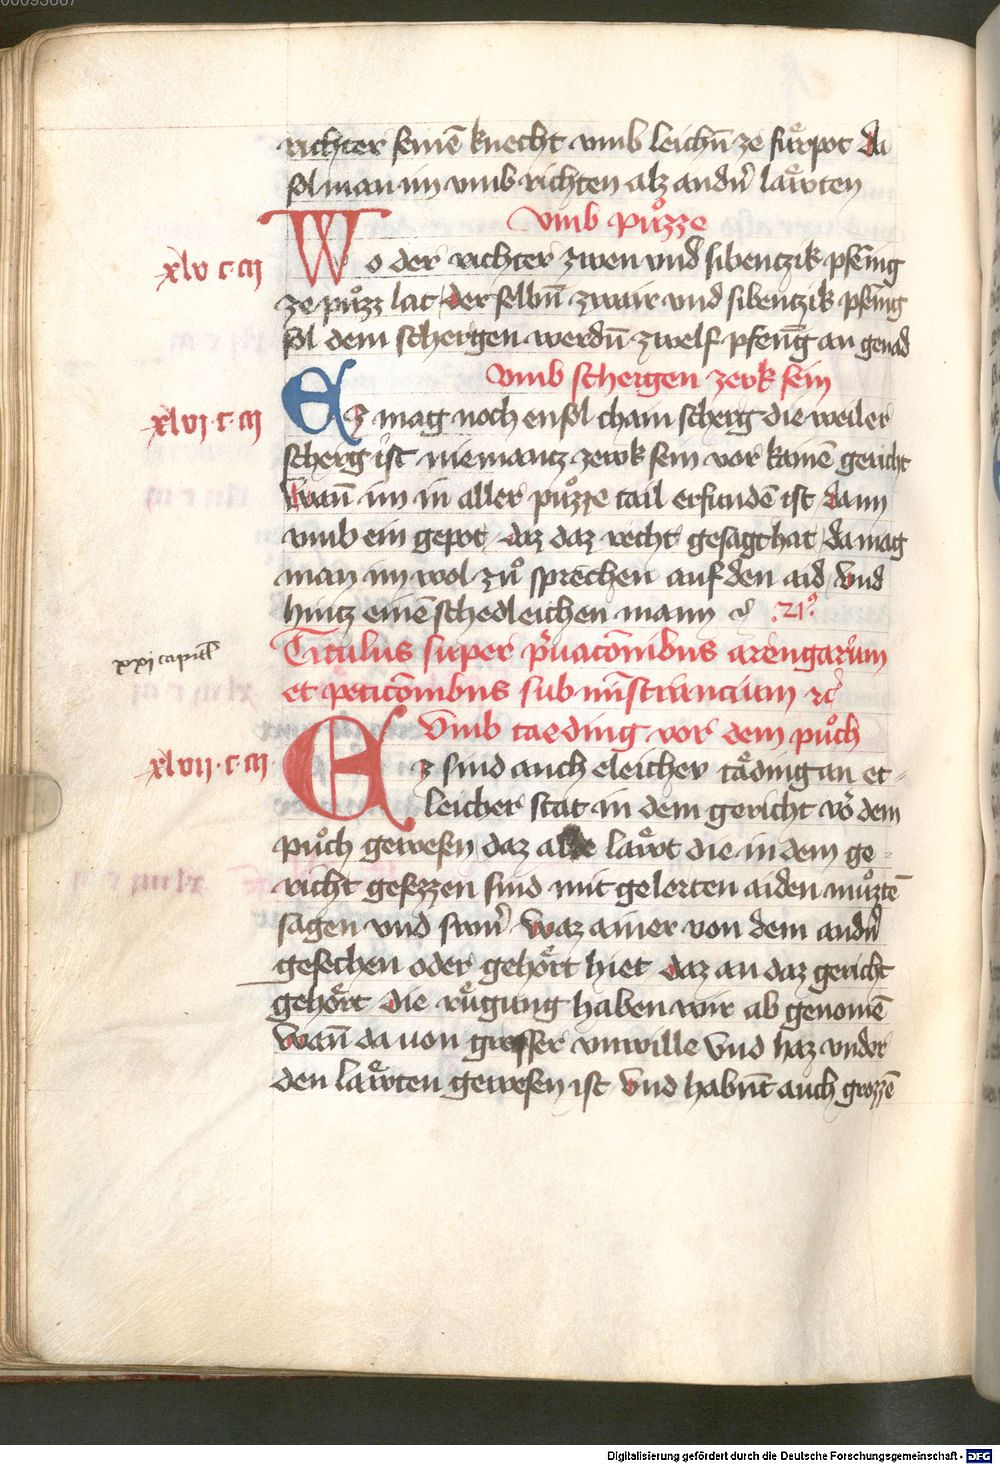 richter seinē knecht vmb leichn̄ ze fuͤrpot da
sol man im vmb richten alz andn̄ laͤwten
vmb puͦzze
xlv c · cij
Wo der richter zwen vnd sibentzik pfēnig
ze puͦzz lat der selbn̄ zwair vnd sibentzik pfēnīg
sol dem schergen werdn̄ zwelf pfenīg an genad
vmb schergen zewk sein
xlvj · c · cij
Ez mag noch ensol chain scherg die weil er
scherg ist niemantz zewk sein vor kainē gericht
wan̄ im in aller puͦzze tail erfundē ist dann
vmb ein gepot daz daz recht gesagt hat da mag
man im wol zuͦ sprechen auf den aid vnd
hintz einē schedleichen mann
xxj capitl̄
Titulus super p̄uacōnibus arengarum
et peticōnibus sub mīstrancium ꝛc̄
Vmb taeding vor dem puͦch
xlvij · c · cij
Ez sind auch eleicher taͤding an et⸗
leicher stat in dem gericht vō dem
puͦch gewesen daz alle laͤwt die in dem ge⸗
richt gesezzen sind mit gelerten aiden muͦztē
sagen vnd swn̄ waz ainer von dem andn̄
gesechen oder gehoͤrt hiet daz an daz gericht
gehoͤrt die ruͤgung haben wir ab genomē
wan̄ da uon grosser vnwille vnd haz vnder
den laͤwten gewesen ist vnd habnt̄ auch grozzē
Digitalisierung gefördert durch die Deutsche Forschungsgemeinschaft - DFG